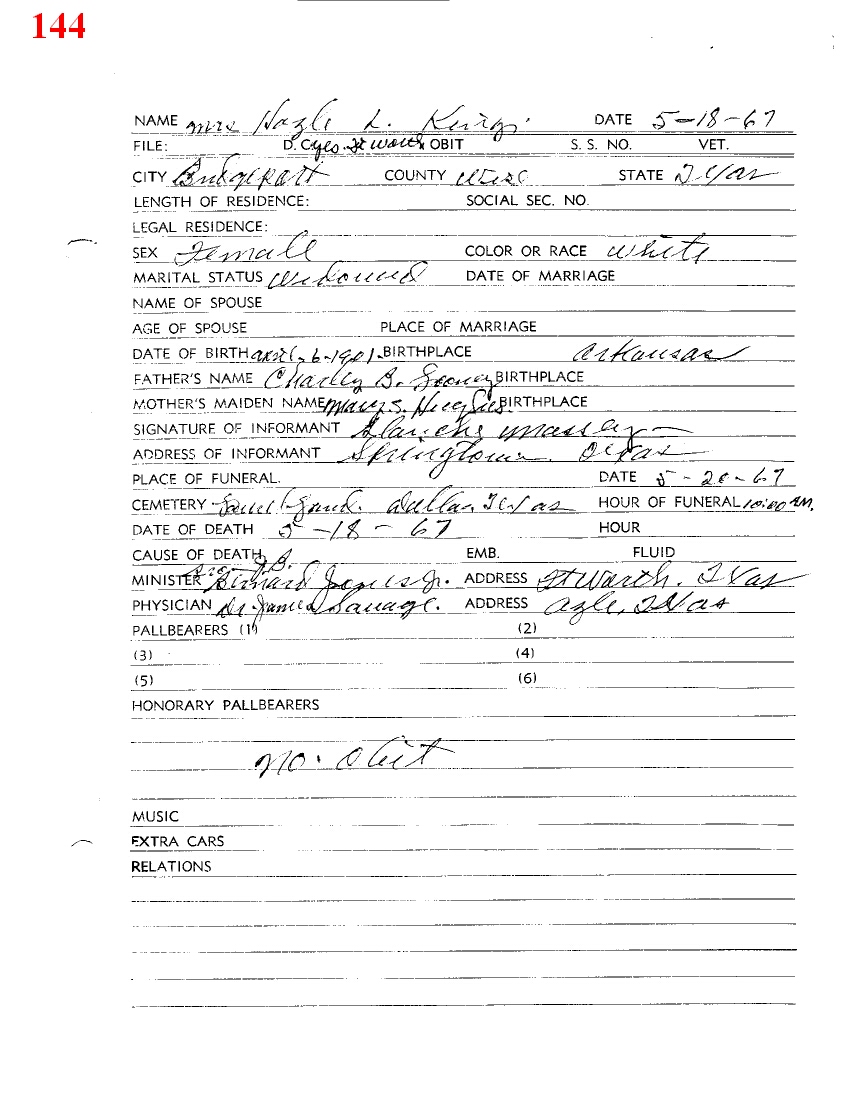 144
NAME Mrs Hazle L. King. DATE 5-18-67
FILE: D. C. yes. Ft Worth OBIT S. S. NO. VET.
CITY Bridgeport COUNTY Wise STATE Texas
LENGTH OF RESIDENCE: SOCIAL SEC. NO.
LEGAL RESIDENCE:
SEX Female COLOR OR RACE White
MARITAL STATUS Widowed DATE OF MARRIAGE
NAME OF SPOUSE
AGE OF SPOUSE PLACE OF MARRIAGE
DATE OF BIRTH April-6-1901. BIRTHPLACE Arkansas
FATHER'S NAME Charley B. BIRTHPLACE
MOTHER'S MAIDEN NAME Mary S. Hughes. BIRTHPLACE
SIGNATURE OF INFORMANT Blanche Massey
ADDRESS OF INFORMANT Springtown Texas
PLACE OF FUNERAL. DATE 5-20-67
CEMETERY Laurel Land. Dallas, Texas HOUR OF FUNERAL 10:00 AM.
DATE OF DEATH 5-18-67 HOUR
CAUSE OF DEATH EMB. FLUID
MINISTER Jr. ADDRESS Ft Worth. Texas
PHYSICIAN Dr. James Savage. ADDRESS Azle, Texas
PALLBEARERS (1) (2)
(3) (4)
(5) (6)
HONORARY PALLBEARERS
No. Obit
MUSIC
EXTRA CARS
RELATIONS